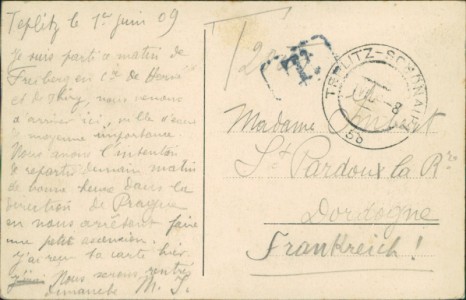 Teplitz le 1er juin 09
Je suis parti ce matin de
Freiberg en Cie de Dorvi
et de Thiry, nous venons
d'arriver ici, ville d'eaux
de moyenne importance
Nous avons l'intention
de repartir demain matin
de bonne heure dans la
direction de Prague
en nous arrêtant faire
une petit ascension.
j'ai reçu ta carte hier
Nous serons rentrés
dimanche M. J.
T
T.
TEPLITZ-SCHÖNAU
5b
Madame
St Pardoux la Rre
Dordogne
Frankreich!